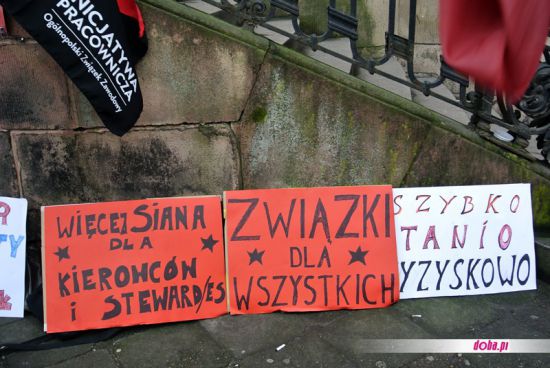 INICJATYWA
PRACOWNICZA
Ogólnopolski Związek Zawodowy
WIĘCEJ SIANA
DLA
KIEROWCÓW
i STEWARD/ES
ZWIĄZKI
DLA
WSZYSTKICH
SZYBKO
TANIO
YZYSKOWO
doba.pl